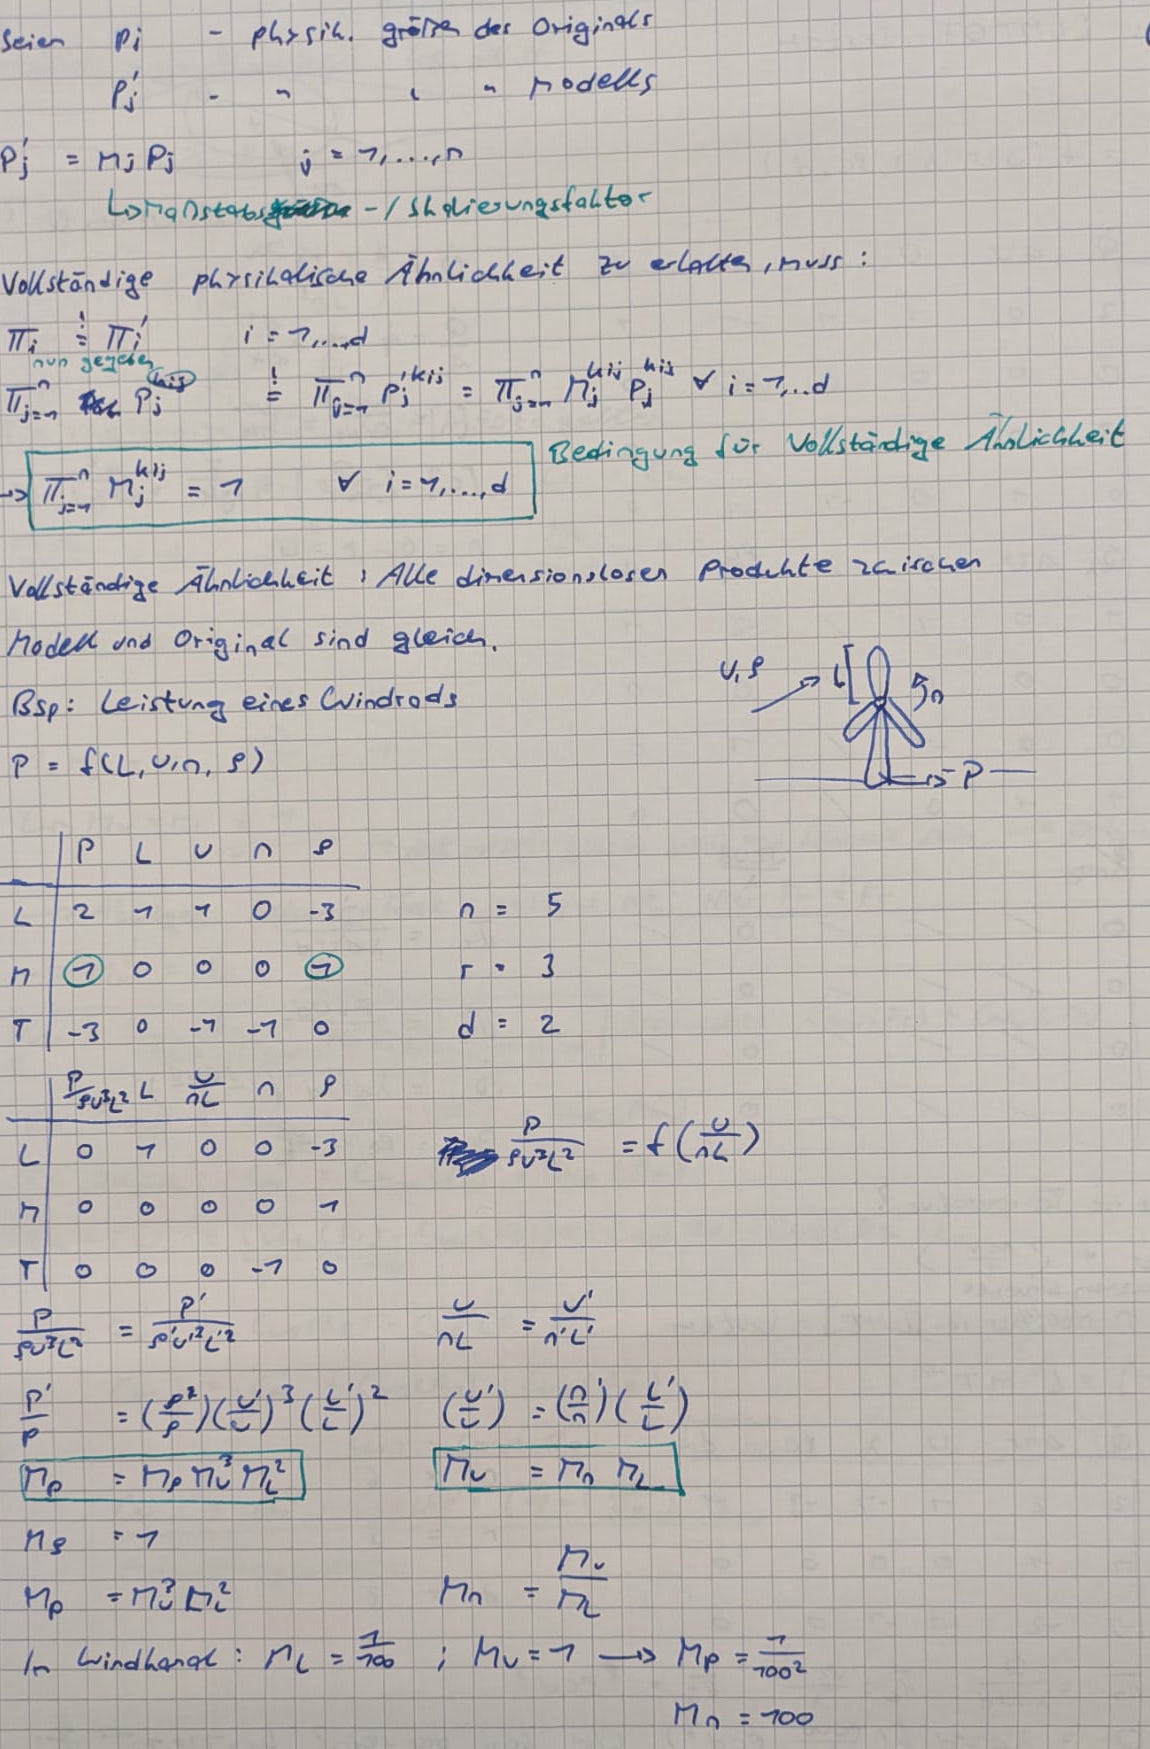 Seien pi - physik. größen des Originals
pj' - " " " Modells
pj' = Mj pj j = 1,...,n
↳ Maßstabs - / Skalierungsfaktor
Vollständige physikalische Ähnlichkeit zu erhalten, muss:
πi =! πi' i = 1,...,d
nun gegeben
π_{j=1}^n pj^{kij} =! π_{j=1}^n pj'^{kij} = π_{j=1}^n Mj^{kij} pj^{kij} ∀ i = 1,...d
→ π_{j=1}^n Mj^{kij} = 1 ∀ i = 1,...,d Bedingung für Vollständige Ähnlichkeit
Vollständige Ähnlichkeit: Alle dimensionslosen Produkte zwischen
Modell und Original sind gleich.
U, ρ L n
Bsp: Leistung eines Windrads
P = f(L, U, n, ρ)
→ P
P L U n ρ
L 2 1 1 0 -3 n = 5
M 1 0 0 0 1 r = 3
T -3 0 -1 -1 0 d = 2
P/ρU³L² L U/nL n ρ
L 0 1 0 0 -3 P/ρU³L² = f(U/nL)
M 0 0 0 0 1
T 0 0 0 -1 0
P/ρU³L² = P'/ρ'U'³L'² U/nL = U'/n'L'
P'/P = (ρ'/ρ)(U'/U)³(L'/L)² (U'/U) = (n'/n)(L'/L)
MP = Mρ MU³ ML² MU = Mn ML
Mρ = 1
MP = MU³ ML² Mn = MU/ML
In Windkanal: ML = 1/100 ; MU = 1 → MP = 1/100²
Mn = 100